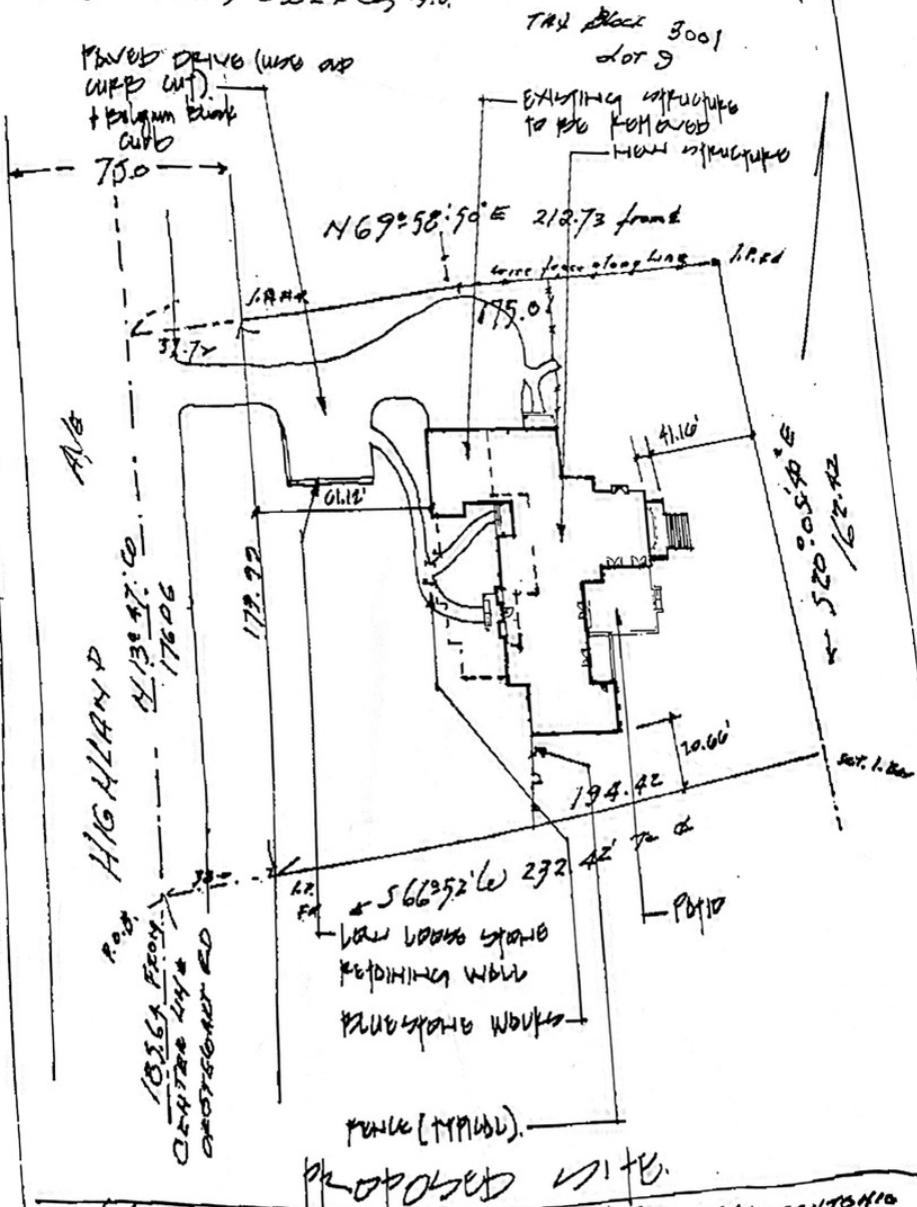 TAX Block 3001
LOT 9
PAVED DRIVE (USE OLD
CURB CUT)
+ Belgium Block
curb
EXISTING STRUCTURE
TO BE REMOVED
NEW STRUCTURE
75.0
N 69° 58' 50" E 212.73 from ℄
wire fence along line
I.P. Fd
175.0
37.72
AVE
41.16'
61.12'
S 20° 05' 40" E
162.42
N 13° 47' 00
176.06
HIGHLAND
20.66'
194.42
S 66° 52' W 232.42' To ℄
I.P.
Fd
P.O.B.
185.64 FROM
CENTER LINE
PATIO
LOW LOOSE STONE
RETAINING WALL
BLUESTONE WALKS
FENCE (TYPICAL).
PROPOSED SITE.